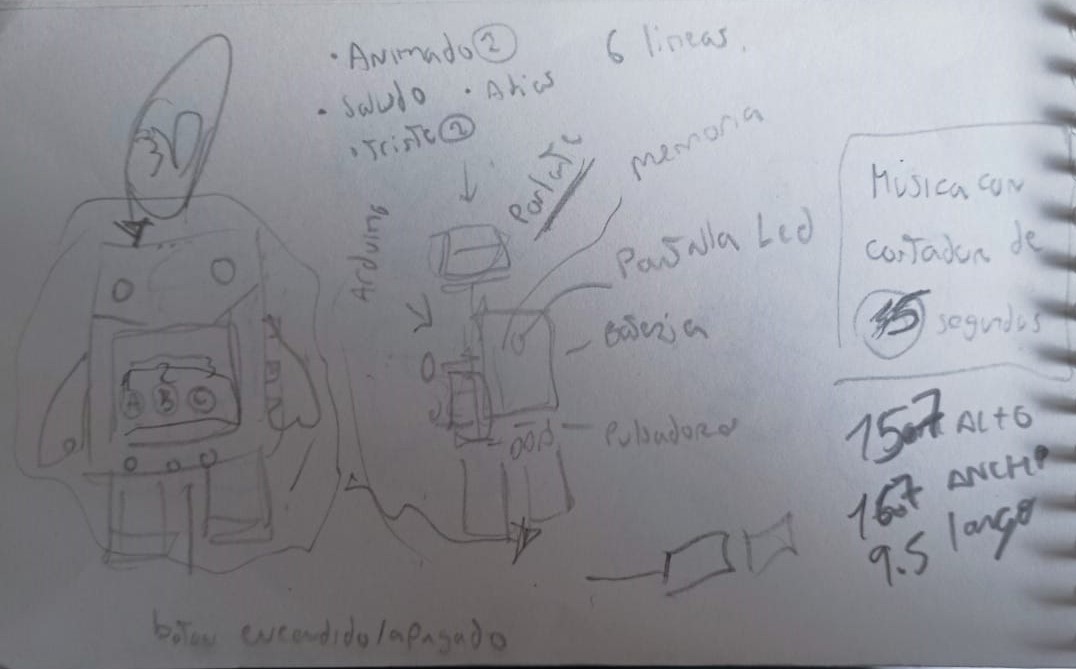 • Animado ② 6 lineas.
• Saludo • Adios
• Triste ②
3D
Arduino
Parlante
memoria
Pantalla Led
Bateria
Pulsadores
A B C
Música con
contador de
segundos
ALTO
ANCHO
9.5 largo
boton encendido/apagado